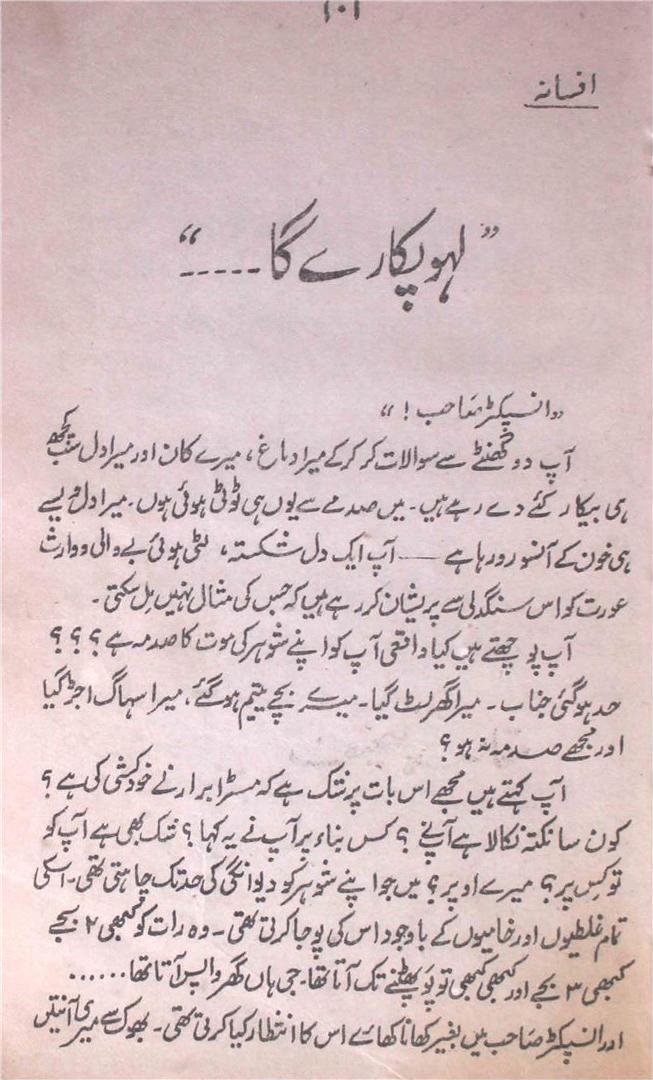 افسانہ
”لہو پکارے گا-----“
”انسپکٹر صاحب!“
آپ دو گھنٹے سے سوالات کر کر کے میرا دماغ، میرے کان اور میرا دل سب کچھ
ہی بیکار کئے دے رہے ہیں۔ میں صدمے سے یوں ہی ٹوٹی ہوئی ہوں۔ میرا دل ویسے
ہی خون کے آنسو رو رہا ہے —— آپ ایک دل شکستہ، لٹی ہوئی بے والی و وارث
عورت کو اس سنگدلی سے پریشان کر رہے ہیں کہ جس کی مثال نہیں مل سکتی۔
آپ پوچھتے ہیں کیا واقعی آپ کو اپنے شوہر کی موت کا صدمہ ہے؟؟؟
حد ہو گئی جناب۔ میرا گھر لٹ گیا۔ میرے بچے یتیم ہو گئے، میرا سہاگ اجڑ گیا
اور مجھے صدمہ نہ ہو؟
آپ کہتے ہیں مجھے اس بات پر شک ہے کہ مسٹر ابرار نے خودکشی کی ہے؟
کون سا نکتہ نکالا ہے آپنے؟ کس بناء پر آپ نے یہ کہا؟ شک بھی ہے آپ کو
تو کس پر؟ میرے اوپر؟ میں جو اپنے شوہر کو دیوانگی کی حد تک چاہتی تھی۔ اسکی
تمام غلطیوں اور خامیوں کے باوجود اس کی پوجا کرتی تھی۔ وہ رات کو کبھی ۲ بجے
کبھی ۳ بجے اور کبھی کبھی تو پَو پھٹنے تک آتا تھا۔ جی ہاں گھر واپس آتا تھا......
اور انسپکٹر صاحب میں بغیر کھانا کھائے اس کا انتظار کیا کرتی تھی۔ بھوک سے میری آنتیں